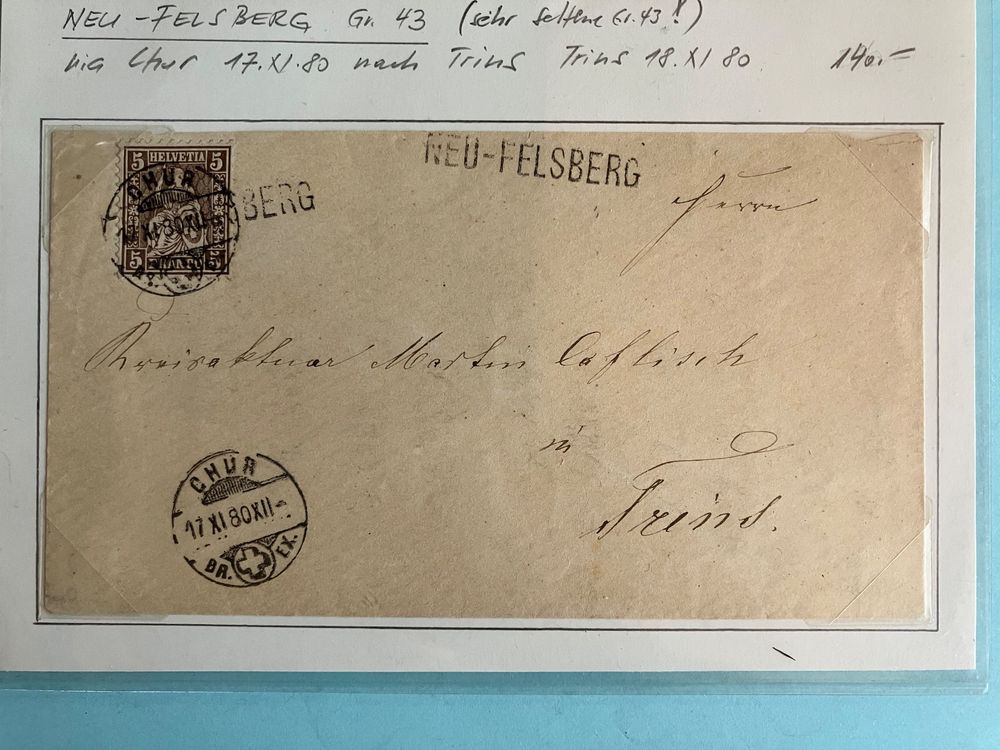 NEU-FELSBERG Gr. 43 (sehr seltene Gr. 43!)
via Chur 17.XI.80 nach Trins Trins 18.XI 80 140.-
NEU-FELSBERG
5 HELVETIA 5
CHUR
BERG
XI 80 XII
5 FRANCO 5
Herrn
Kreisaktuar Martin Caflisch
in
Trins.
CHUR
17 XI 80 XII-
BR. EX.